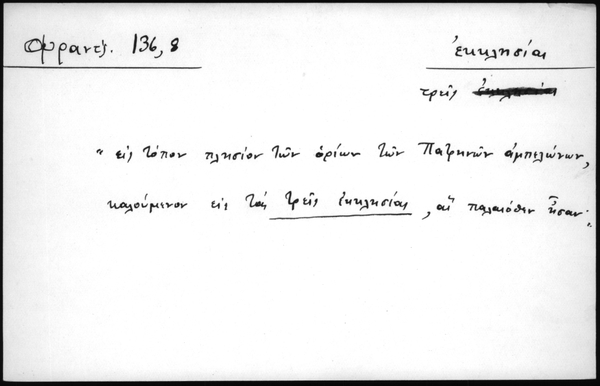 Φραντζ. 136,8
ἐκκλησίαι
τρεῖς
"εἰς τόπον πλησίον τῶν ὁρίων τῶν Πατρηνῶν ἀμπελώνων,
καλούμενον εἰς τάς τρεῖς ἐκκλησίας, αἵ παλαιόθεν ἦσαν."